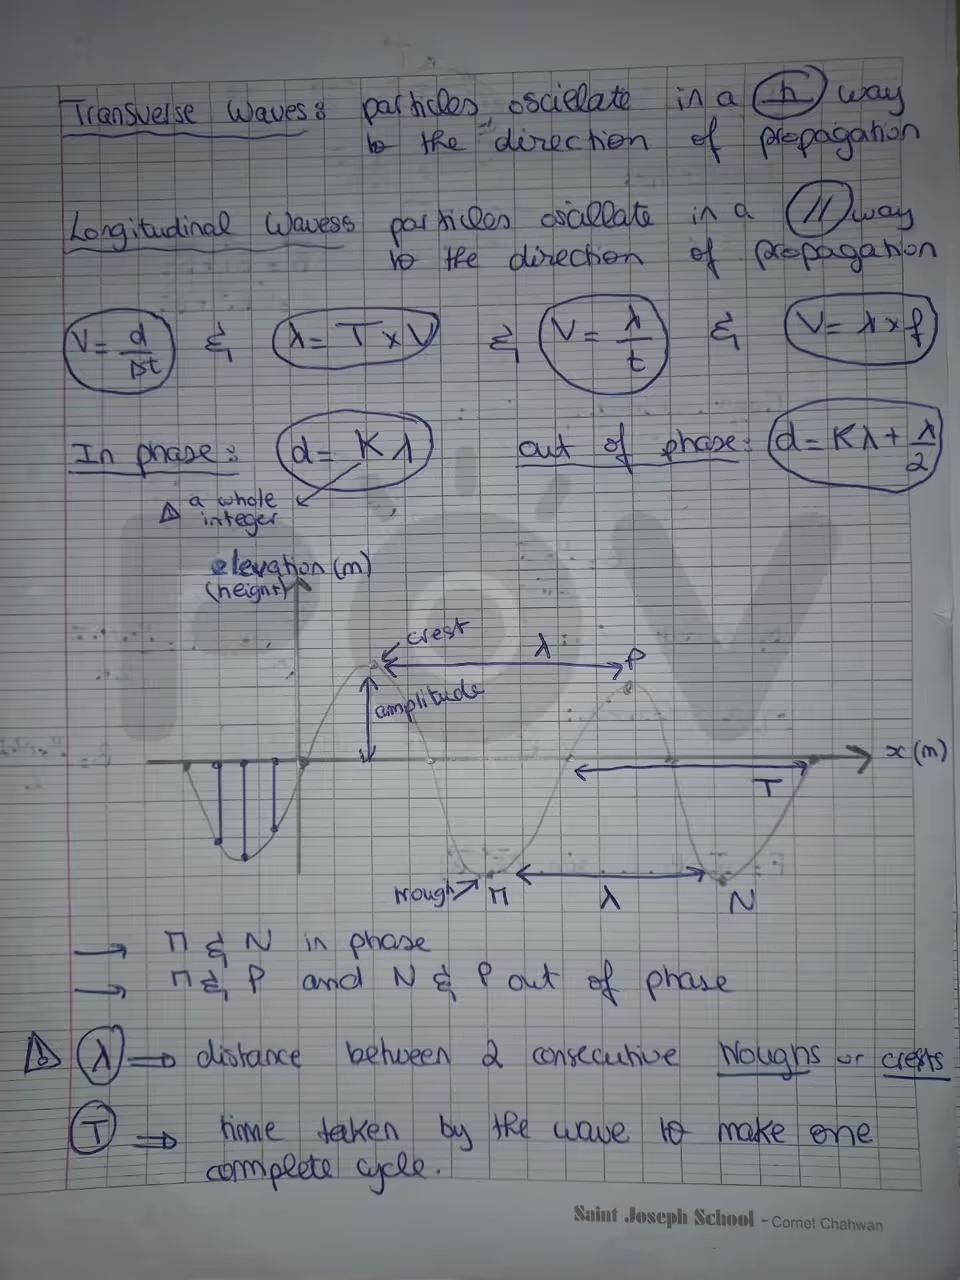 Transverse Waves: particles oscillate in a (h) way
to the direction of propagation
Longitudinal Waves: particles oscillate in a (//) way
to the direction of propagation
V = d/Δt & λ = T x V & V = λ/t & V = λ x f
In phase: d = K λ out of phase: d = Kλ + λ/2
a whole
integer
elevation (m)
(height)
crest
λ
P
amplitude
x (m)
T
trough
M
λ
N
→ M & N in phase
→ M & P and N & P out of phase
λ ⇒ distance between 2 consecutive troughs or crests
T ⇒ time taken by the wave to make one
complete cycle.
POV
Saint Joseph School - Cornet Chahwan